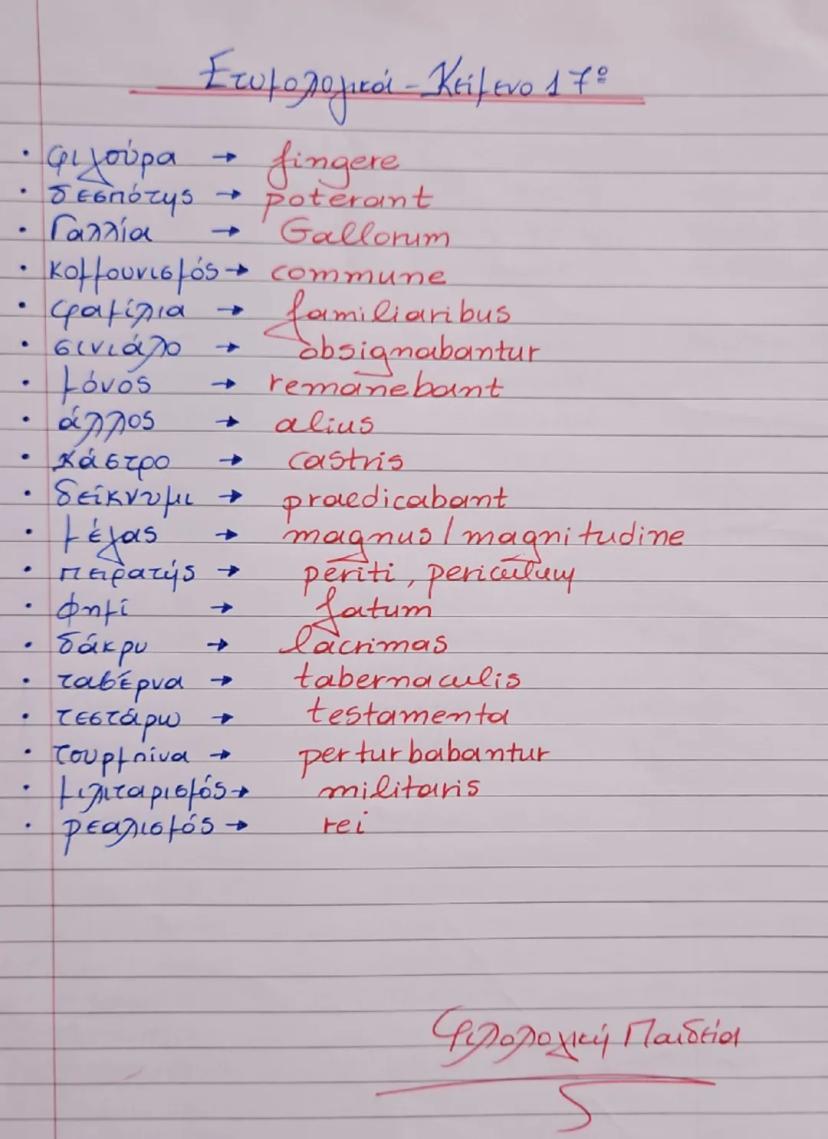 Ετυμολογικά - Κείμενο 17º
· φιγούρα → fingere
· δεσπότης → poterant
· Γαλλία → Gallorum
· κομμουνισμός → commune
· φαμίλια → familiaribus
· σινιάλο → obsignabantur
· μόνος → remanebant
· άλλος → alius
· κάστρο → castris
· δείκνυμι → praedicabant
· μέγας → magnus / magnitudine
· πειρατής → periti, periculum
· φημί → fatum
· δάκρυ → lacrimas
· ταβέρνα → tabernaculis
· τεστάρω → testamenta
· τουρμπίνα → perturbabantur
· μιλιταρισμός → militaris
· ρεαλισμός → rei
Φιλολογική Παιδεία